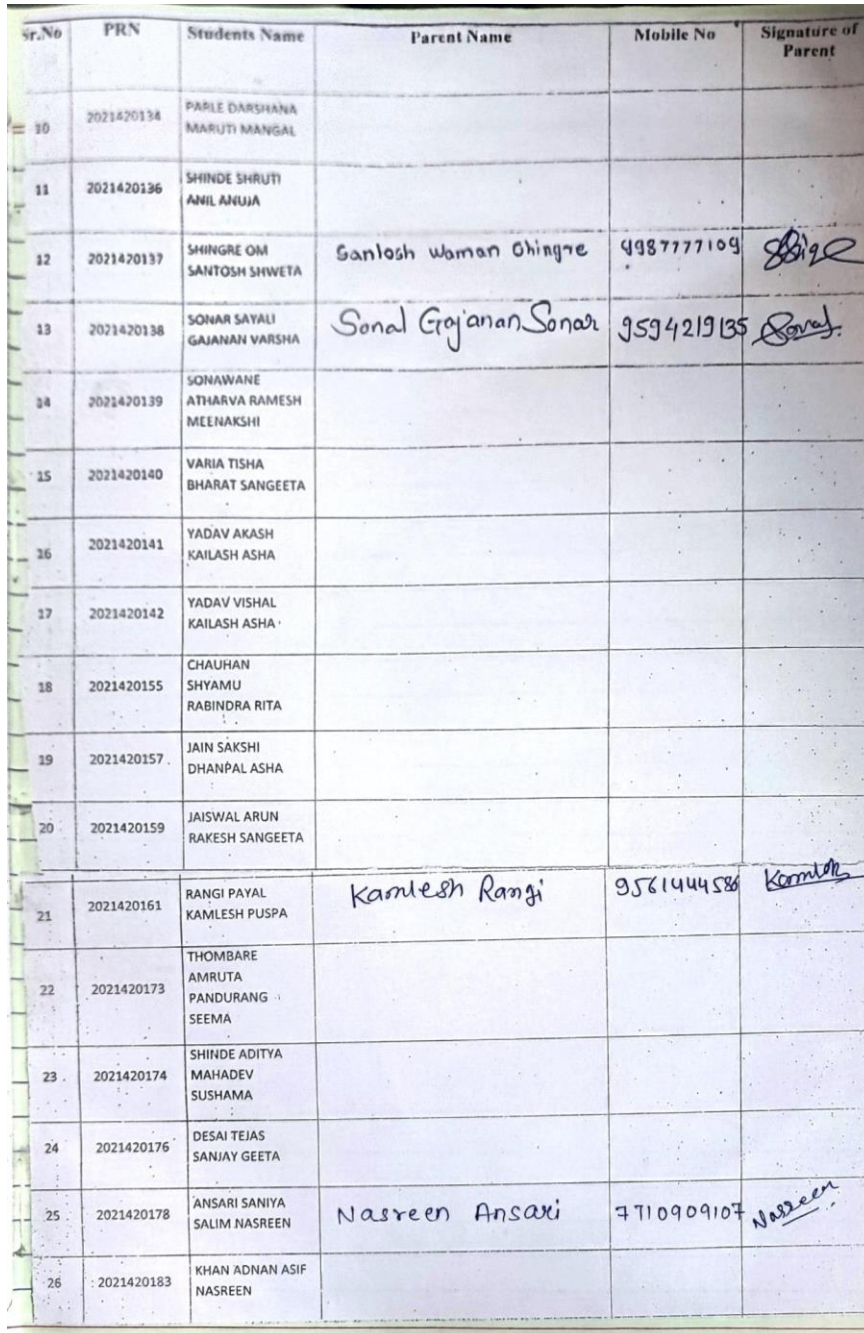 Sr.No PRN Students Name Parent Name Mobile No Signature of
Parent
10 2021420134 PARLE DARSHANA
MARUTI MANGAL
11 2021420136 SHINDE SHRUTI
ANIL ANUJA
12 2021420137 SHINGRE OM Santosh Waman Shingre 9987777109
SANTOSH SHWETA
13 2021420138 SONAR SAYALI Sonal Gajanan Sonar 9594219135 Sonal
GAJANAN VARSHA
14 2021420139 SONAWANE
ATHARVA RAMESH
MEENAKSHI
15 2021420140 VARIA TISHA
BHARAT SANGEETA
16 2021420141 YADAV AKASH
KAILASH ASHA
17 2021420142 YADAV VISHAL
KAILASH ASHA
18 2021420155 CHAUHAN
SHYAMU
RABINDRA RITA
19 2021420157 JAIN SAKSHI
DHANPAL ASHA
20 2021420159 JAISWAL ARUN
RAKESH SANGEETA
21 2021420161 RANGI PAYAL Kamlesh Rangi 9561444586
KAMLESH PUSPA
22 2021420173 THOMBARE
AMRUTA
PANDURANG
SEEMA
23 2021420174 SHINDE ADITYA
MAHADEV
SUSHAMA
24 2021420176 DESAI TEJAS
SANJAY GEETA
25 2021420178 ANSARI SANIYA Nasreen Ansari 7710909107 Nasreen
SALIM NASREEN
26 2021420183 KHAN ADNAN ASIF
NASREEN